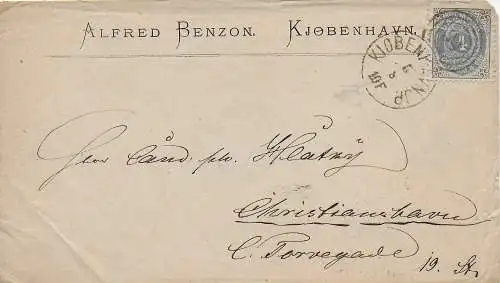 ALFRED BENZON. KJØBENHAVN.
KJØBENH
Herr Cand. ph.
Christianshavn
C. Torvegade
19. St.